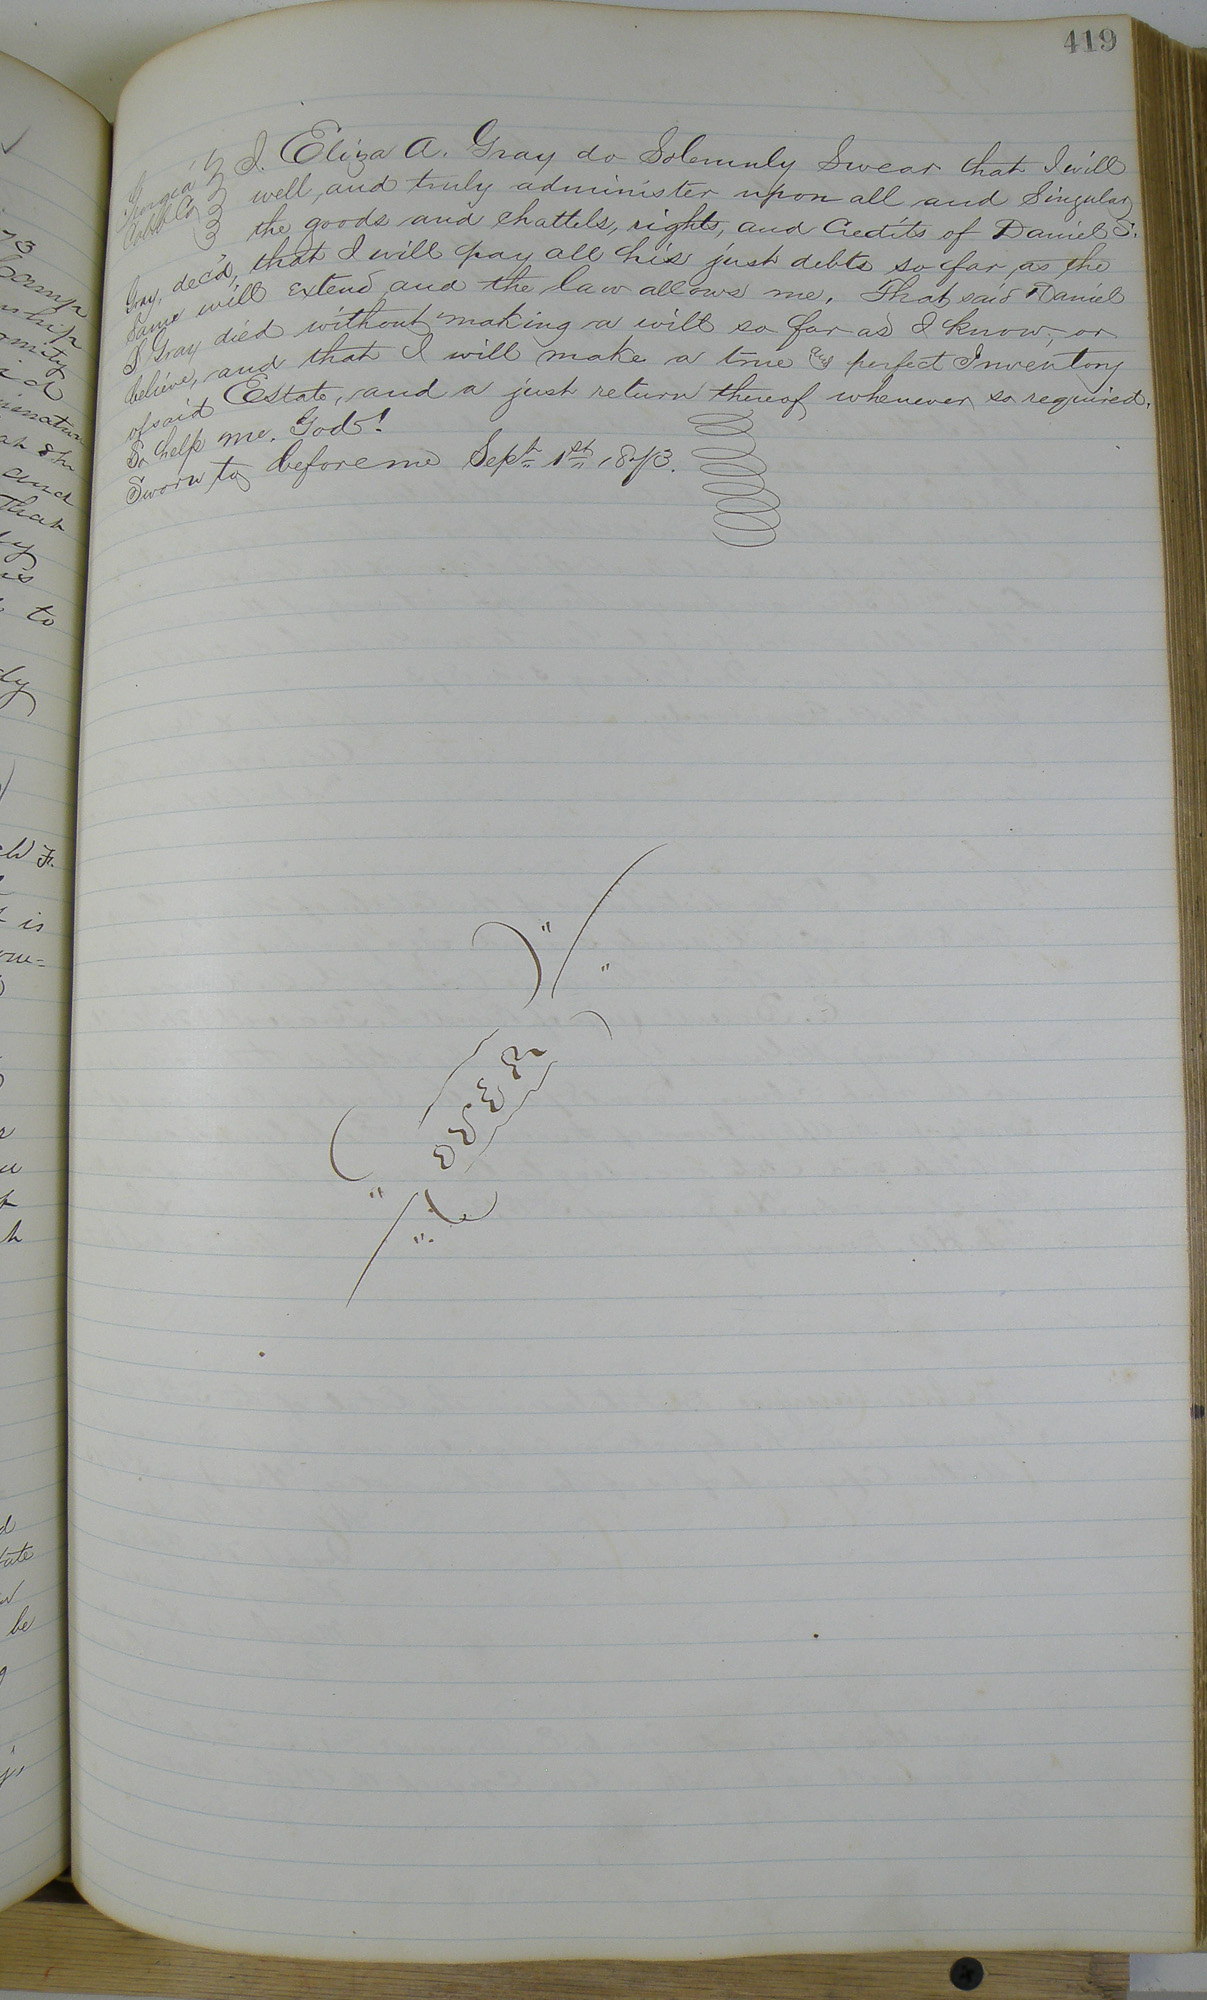 419
Georgia
Cobb Co
I. Eliza A. Gray do Solemnly Swear that I will
well, and truly administer upon all and Singular
the goods and chattels, rights, and Credits of Daniel S.
Gray, dec'd, that I will pay all his just debts so far as the
Same will extend and the law allows me. That said Daniel
S Gray died without making a will so far as I know, or
believe, and that I will make a true & perfect Inventory
of said Estate, and a just return thereof whenever so required.
So help me. God!
Sworn to before me Sept 1st 1873.
73
and
That
is
to
is
be